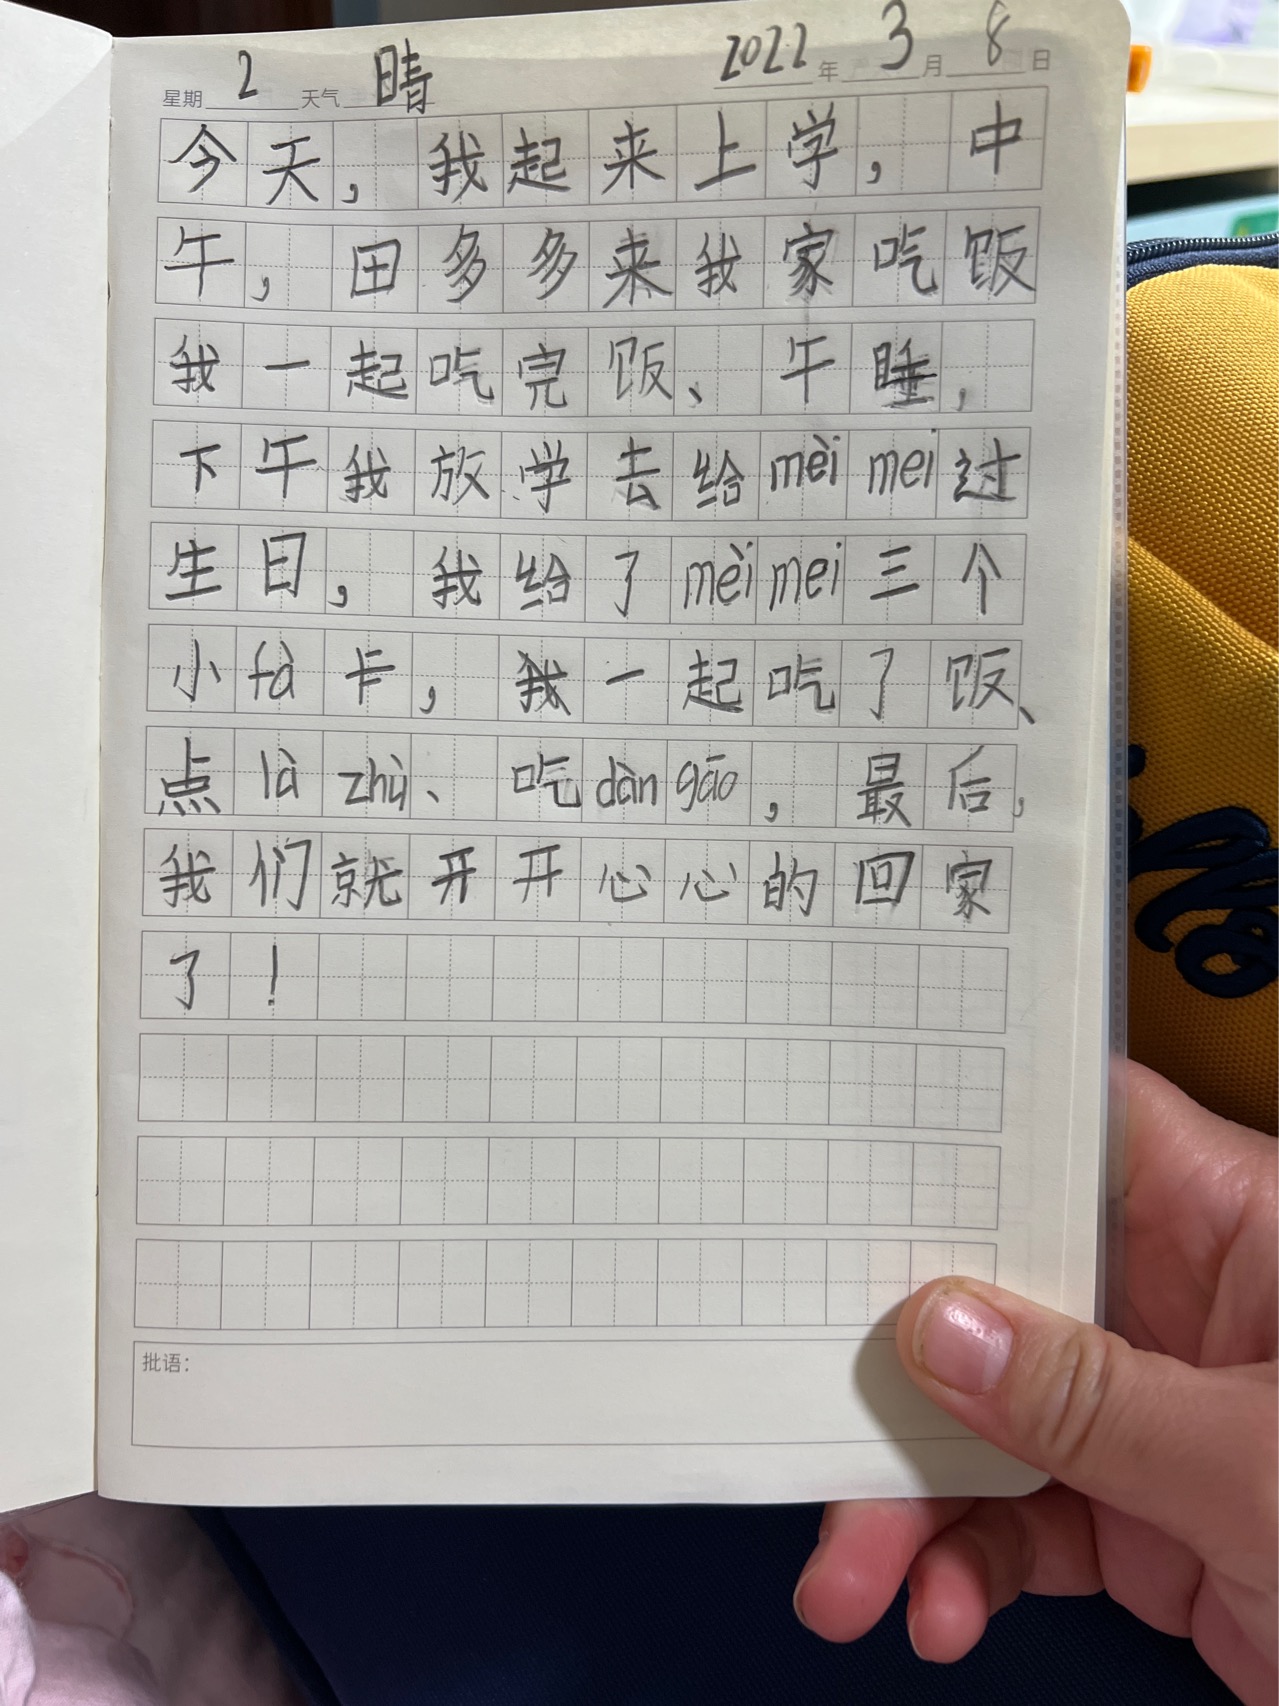 星期 2 天气 晴 2022 年 3 月 8 日
今天，我起来上学，中
午，田多多来我家吃饭
我一起吃完饭、午睡，
下午我放学去给mèi mei过
生日，我给了mèi mei三个
小fà卡，我一起吃了饭、
点là zhù、吃dàn gāo，最后，
我们就开开心心的回家
了！
批语：